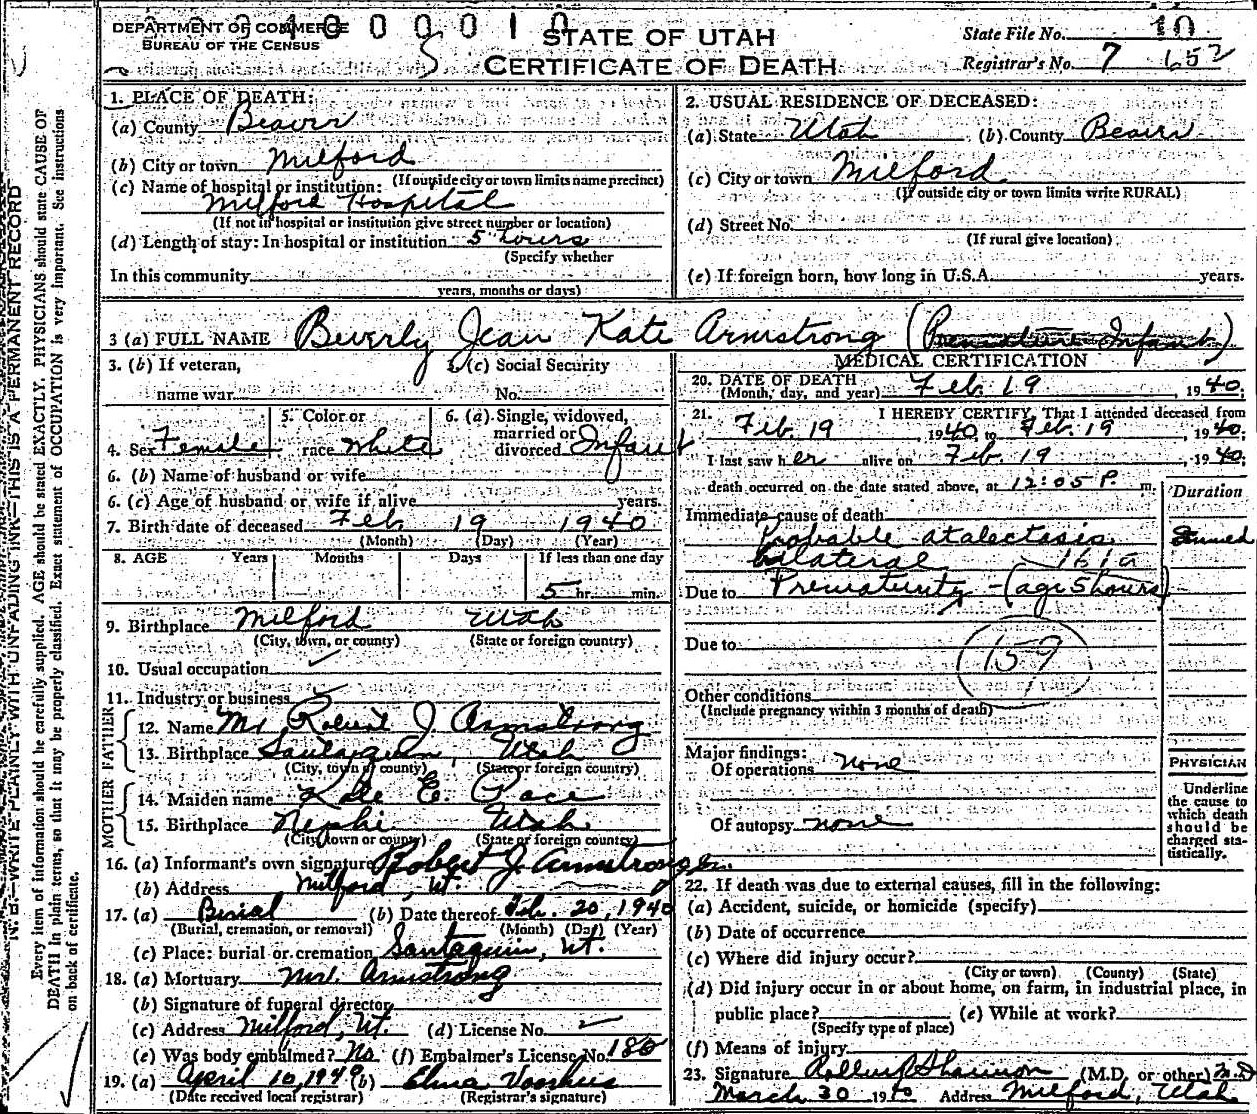 DEPARTMENT OF COMMERCE
BUREAU OF THE CENSUS
STATE OF UTAH
CERTIFICATE OF DEATH
State File No. 10
Registrar's No. 7 652
N. B.—WRITE PLAINLY WITH UNFADING INK—THIS IS A PERMANENT RECORD
Every item of information should be carefully supplied. AGE should be stated EXACTLY. PHYSICIANS should state CAUSE OF
DEATH in plain terms, so that it may be properly classified. Exact statement of OCCUPATION is very important. See instructions
on back of certificate.
1. PLACE OF DEATH:
(a) County Beaver
(b) City or town Milford
(If outside city or town limits name precinct)
(c) Name of hospital or institution:
Milford Hospital
(If not in hospital or institution give street number or location)
(d) Length of stay: In hospital or institution 5 hours
(Specify whether
In this community
years, months or days)
2. USUAL RESIDENCE OF DECEASED:
(a) State Utah (b) County Beaver
(c) City or town Milford
(If outside city or town limits write RURAL)
(d) Street No.
(If rural give location)
(e) If foreign born, how long in U.S.A. years.
3 (a) FULL NAME Beverly Jean Kate Armstrong (Premature Infant)
3. (b) If veteran,
name war
3. (c) Social Security
No.
4. Sex Female
5. Color or
race White
6. (a) Single, widowed,
married or
divorced Infant
6. (b) Name of husband or wife
6. (c) Age of husband or wife if alive years.
7. Birth date of deceased Feb 19 1940
(Month) (Day) (Year)
8. AGE Years Months Days If less than one day
5 hr. min.
9. Birthplace Milford Utah
(City, town, or county) (State or foreign country)
10. Usual occupation
11. Industry or business
FATHER
12. Name Mr Robert J. Armstrong
13. Birthplace Santaquin, Utah
(City, town, or county) (State or foreign country)
MOTHER
14. Maiden name Kate E. Pace
15. Birthplace Nephi Utah
(City, town or county) (State or foreign country)
16. (a) Informant's own signature Robert J. Armstrong Jr.
(b) Address Milford, Ut.
17. (a) Burial (b) Date thereof Feb. 20, 1940
(Burial, cremation, or removal) (Month) (Day) (Year)
(c) Place: burial or cremation Santaquin, Ut.
18. (a) Mortuary Mr. Armstrong
(b) Signature of funeral director
(c) Address Milford, Ut. (d) License No.
(e) Was body embalmed? No (f) Embalmer's License No. 180
19. (a) April 10, 1940 (b) Elma Voorhees
(Date received local registrar) (Registrar's signature)
MEDICAL CERTIFICATION
20. DATE OF DEATH
(Month, day, and year) Feb. 19, 1940;
21. I HEREBY CERTIFY, That I attended deceased from
Feb. 19, 1940, to Feb. 19, 1940;
I last saw her alive on Feb. 19, 1940;
death occurred on the date stated above, at 12:05 P. m.
Duration
Immediate cause of death
Probable atalectasis
bilateral 161a
Due to Prematurity - (age 5 hours)
Due to
159
Other conditions
(Include pregnancy within 3 months of death)
Major findings:
Of operations none
Of autopsy none
PHYSICIAN
Underline
the cause to
which death
should be
charged sta-
tistically.
22. If death was due to external causes, fill in the following:
(a) Accident, suicide, or homicide (specify)
(b) Date of occurrence
(c) Where did injury occur?
(City or town) (County) (State)
(d) Did injury occur in or about home, on farm, in industrial place, in
public place? (e) While at work?
(Specify type of place)
(f) Means of injury
23. Signature Shannon (M.D. or other) M.D
March 30 1940 Address Milford, Utah.